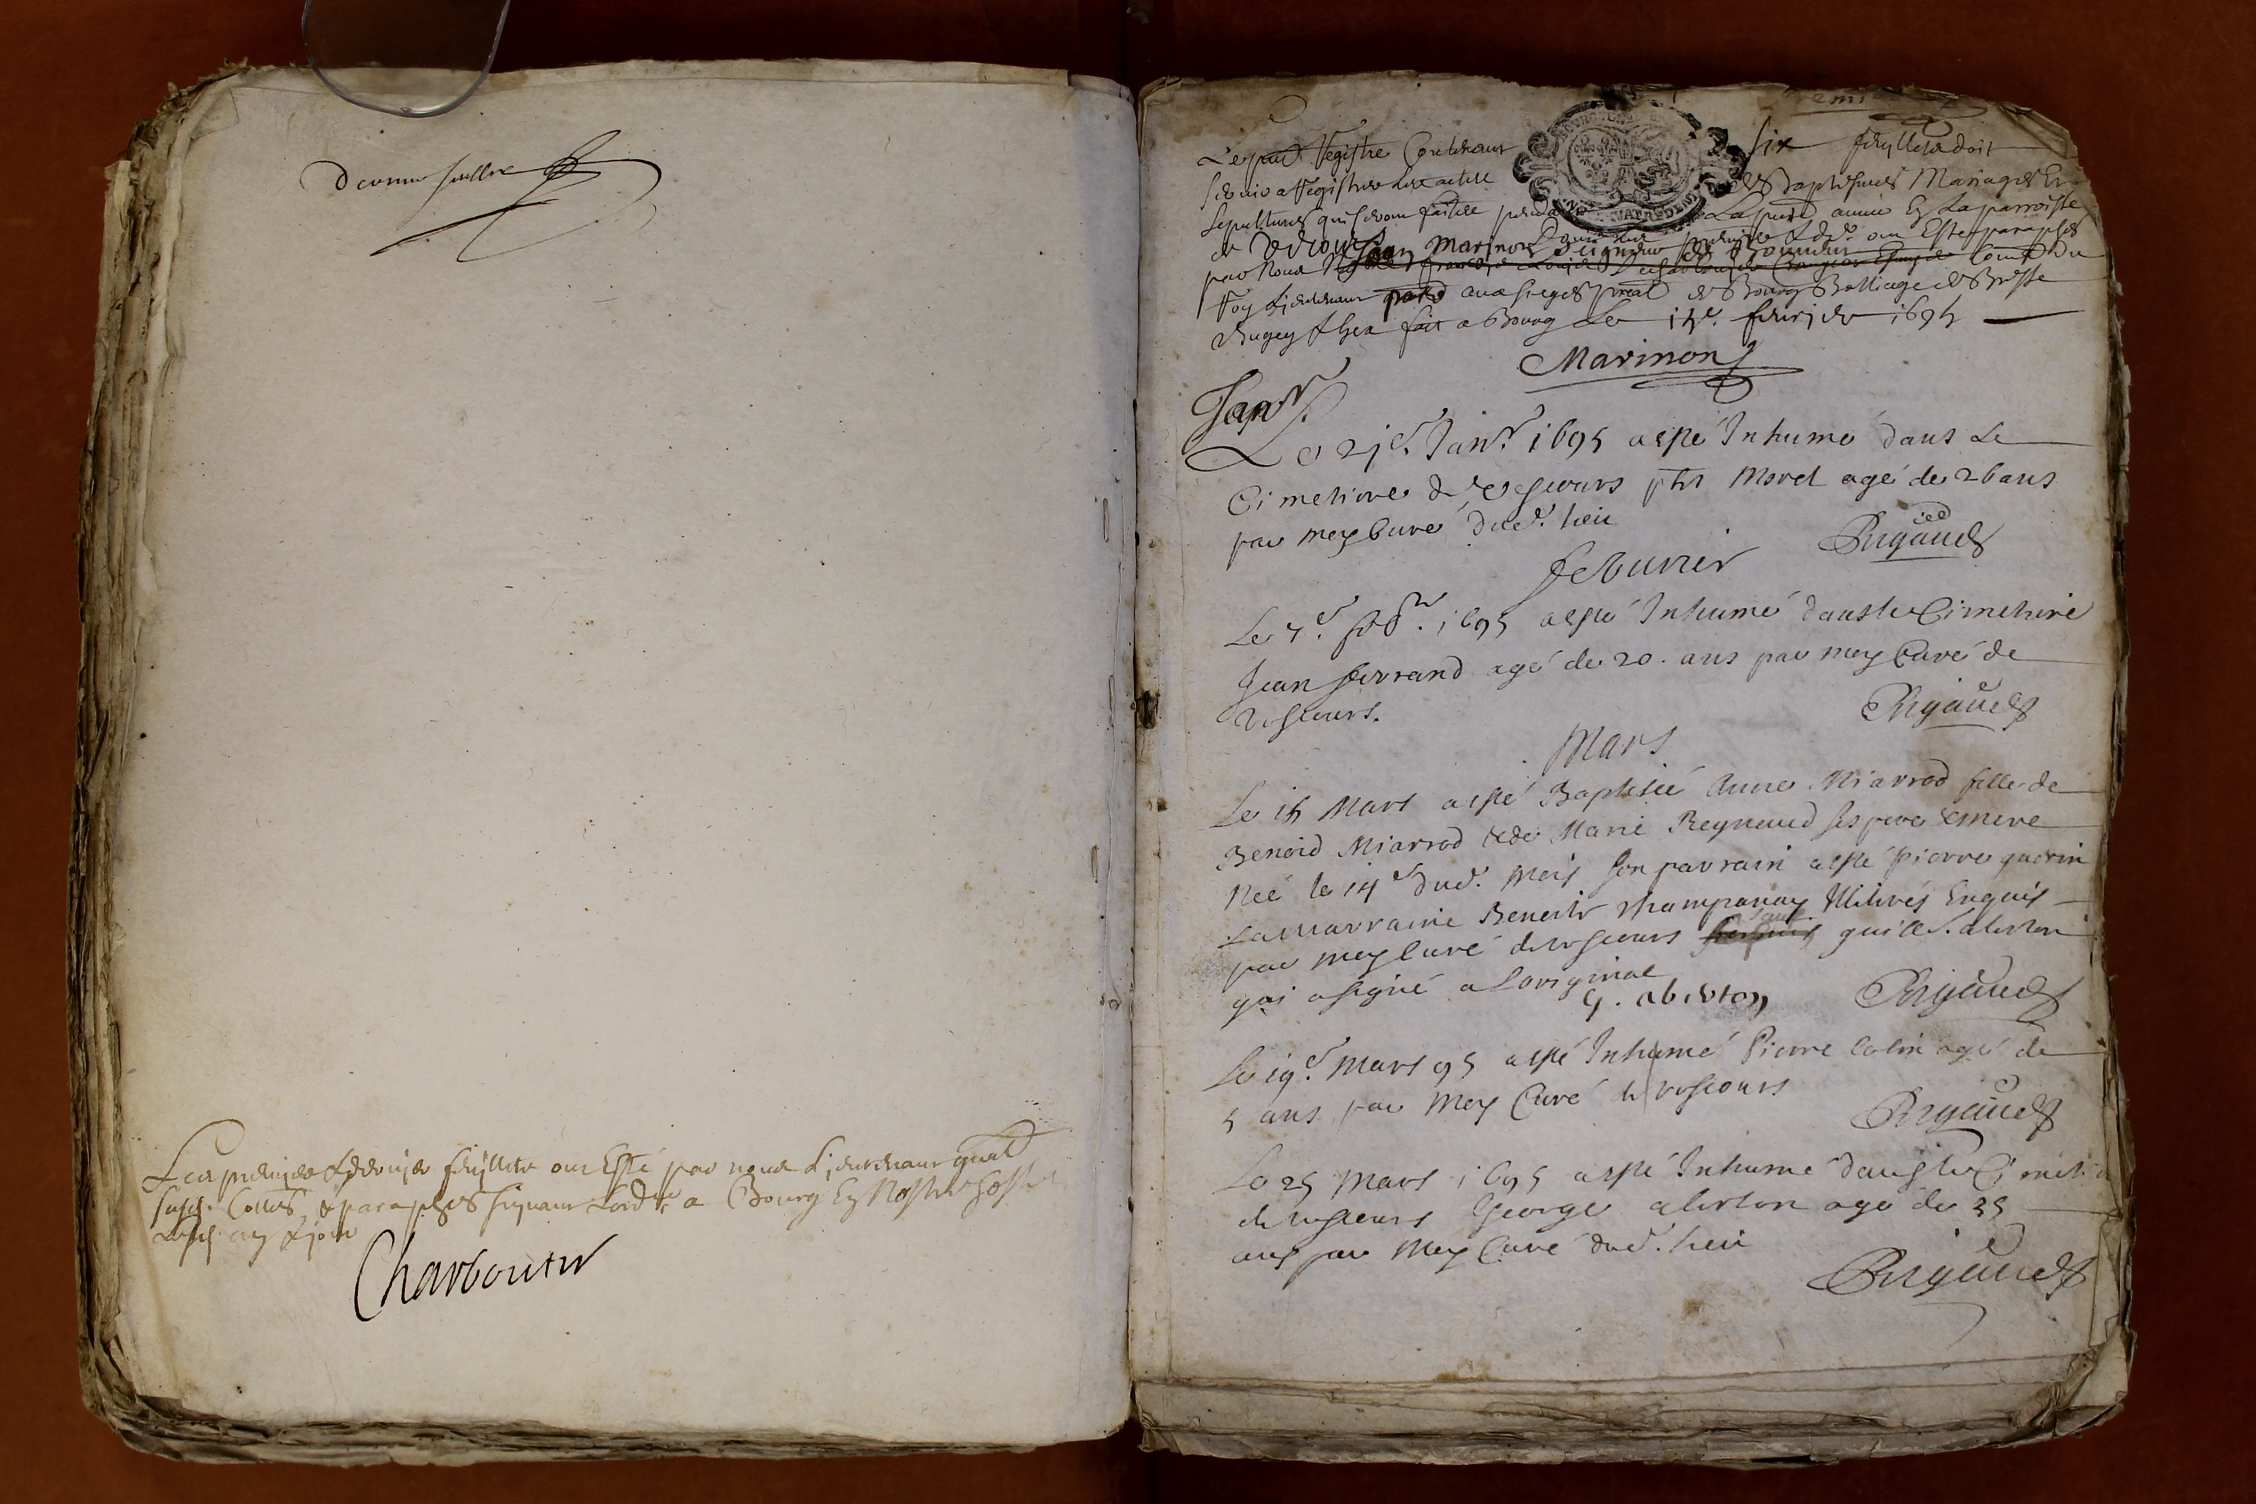 Les premier & dernier feuillets ont esté par nous Lieutenant gnal
susd. Cottés & paraphés suyvant Lord.e a Bourg En Nostre hostel
Charbonnier
Le pnt Registre Contenant six feuillets doit
servir a Registrer Les actes des Baptesmes Mariages Et
sepultures qui seront faittes La pnte année En La parroisse
de
par Nous Jean Marinon
Roy Lieutenant aux sieges pnal de Bourg Balliage de Bresse
Bugey & Gex fait a Bourg Le 15e. febvrier 1695
Marinon
Janvr.
Le 21e. Janvr. 1695 a esté Inhumé dans Le
Cimetiere de Vescours Morel agé de 26 ans
par moy Curé dud. lieu
Rigaud
febvrier
Le 7e. febr. 1695 a esté Inhumé dans le Cimetiere
Jean ferrand agé de 20. ans par moy Curé de
Vescours.
Rigaud
Mars
Le 15 Mars a esté Baptisée Anne Miarrod fille de
Benoid Miarrod & de Marie Reynaud ses pere & mere
Née le 14e dud. Mois son parrain a esté pierre guerin
La marraine Benoite Champanay Illitérés Enquis
par moy Curé de Vescours sauf guill. aberton
qui a signé a Loriginal
G. aberton
Rigaud
Le 19e. Mars 95 a esté Inhumé Pierre Colin agé de
5 ans par Moy Curé de Vescours
Rigaud
Le 25 Mars 1695 a esté Inhumé dans le
de Vescours George aberton agé de 35
ans par Moy Curé dud. lieu
Rigaud